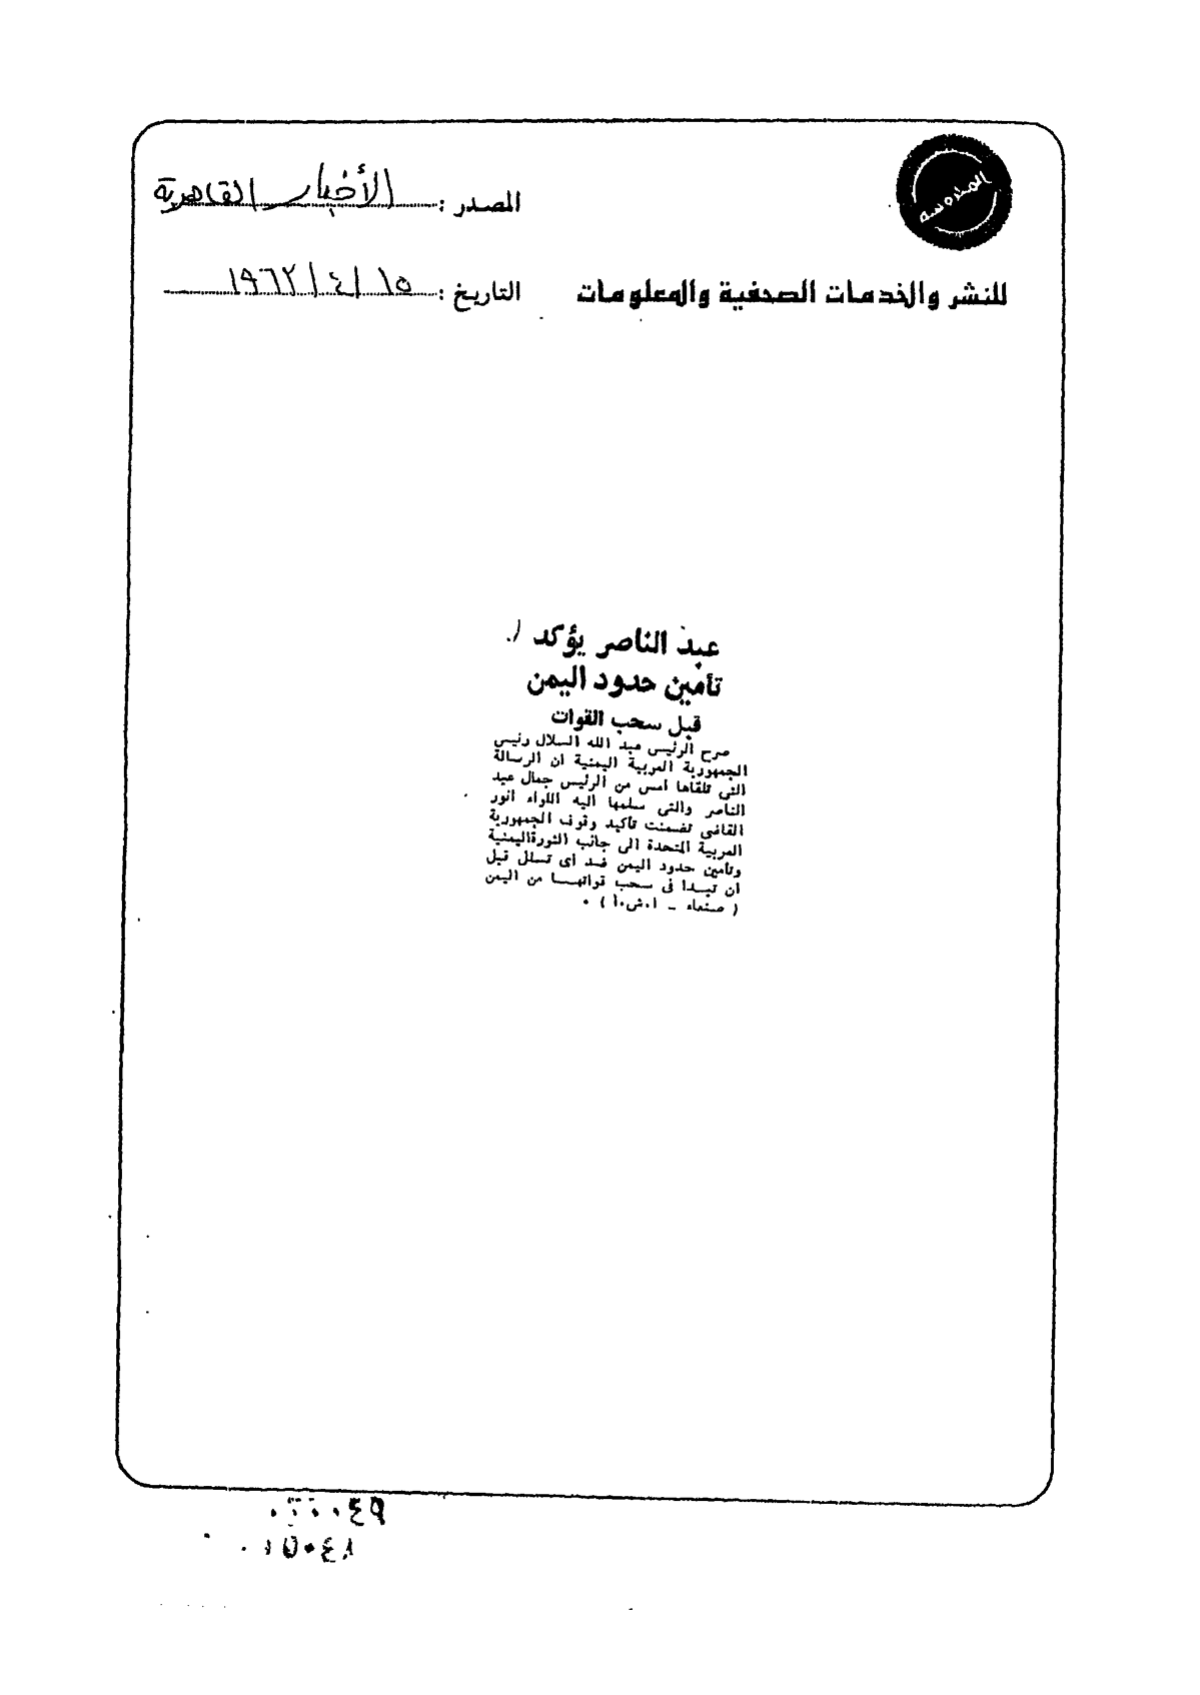 المحروسة
المصدر : الأخبار القاهرية
للنشر والخدمات الصحفية والمعلومات
التاريخ : ١٩٦٢/٤/١٥
عبد الناصر يؤكد
تأمين حدود اليمن
قبل سحب القوات
صرح الرئيس عبد الله السلال رئيس
الجمهورية العربية اليمنية ان الرسالة
التى تلقاها امس من الرئيس جمال عبد
الناصر والتى سلمها اليه اللواء انور
القاضى تضمنت تأكيد وقوف الجمهورية
العربية المتحدة الى جانب الثورةاليمنية
وتأمين حدود اليمن ضد اى تسلل قبل
ان تبدا فى سحب قواتهـا من اليمن
( صنعاء – ا.ش.أ ) .